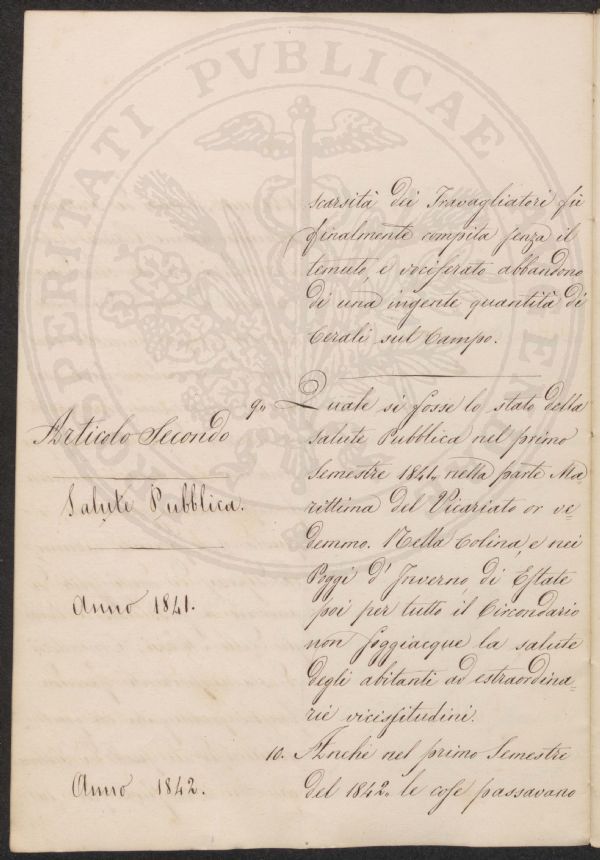 scarsità dei Travagliatori fù
finalmente compita senza il
temuto, e vociferato abbandono
di una ingente quantità di
Cerali sul Campo.
Articolo Secondo
Salute Pubblica.
Anno 1841.
9,, Quale si fosse lo stato della
salute Pubblica nel primo
semestre 1841,, nella parte Ma-
rittima del Vicariato or ve-
demmo. Nella Colina, e nei
Poggi d'Inverno, di Estate
poi per tutto il Circondario
non soggiacque la salute
degli abitanti ad estraordina-
rie vicissitudini.
Anno 1842.
10. Anche nel primo Semestre
del 1842,, le cose passavano